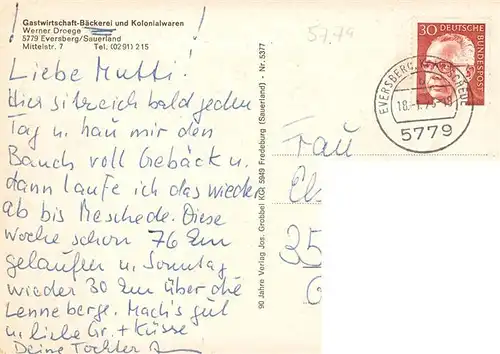 ! !
Gastwirtschaft-Bäckerei und Kolonialwaren
Werner Droege
5779 Eversberg/Sauerland
Mittelstr. 7 Tel. (02 91) 2 15
Liebe Mutti!
Hier sitze ich bald jeden
Tag u. hau mir den
Bauch voll Gebäck u.
dann laufe ich das wieder
ab bis Meschede. Diese
Woche schon 76 Km
gelaufen u. Sonntag
wieder 30 Km über die
Lenneberge. Mach's gut
u. liebe Gr. + Küsse
Deine Tochter
90 Jahre Verlag Jos. Grobbel KG, 5949 Fredeburg (Sauerland) - Nr. 5377
57.79
30 DEUTSCHE BUNDESPOST
EVERSBERG,
5779
Frau
35